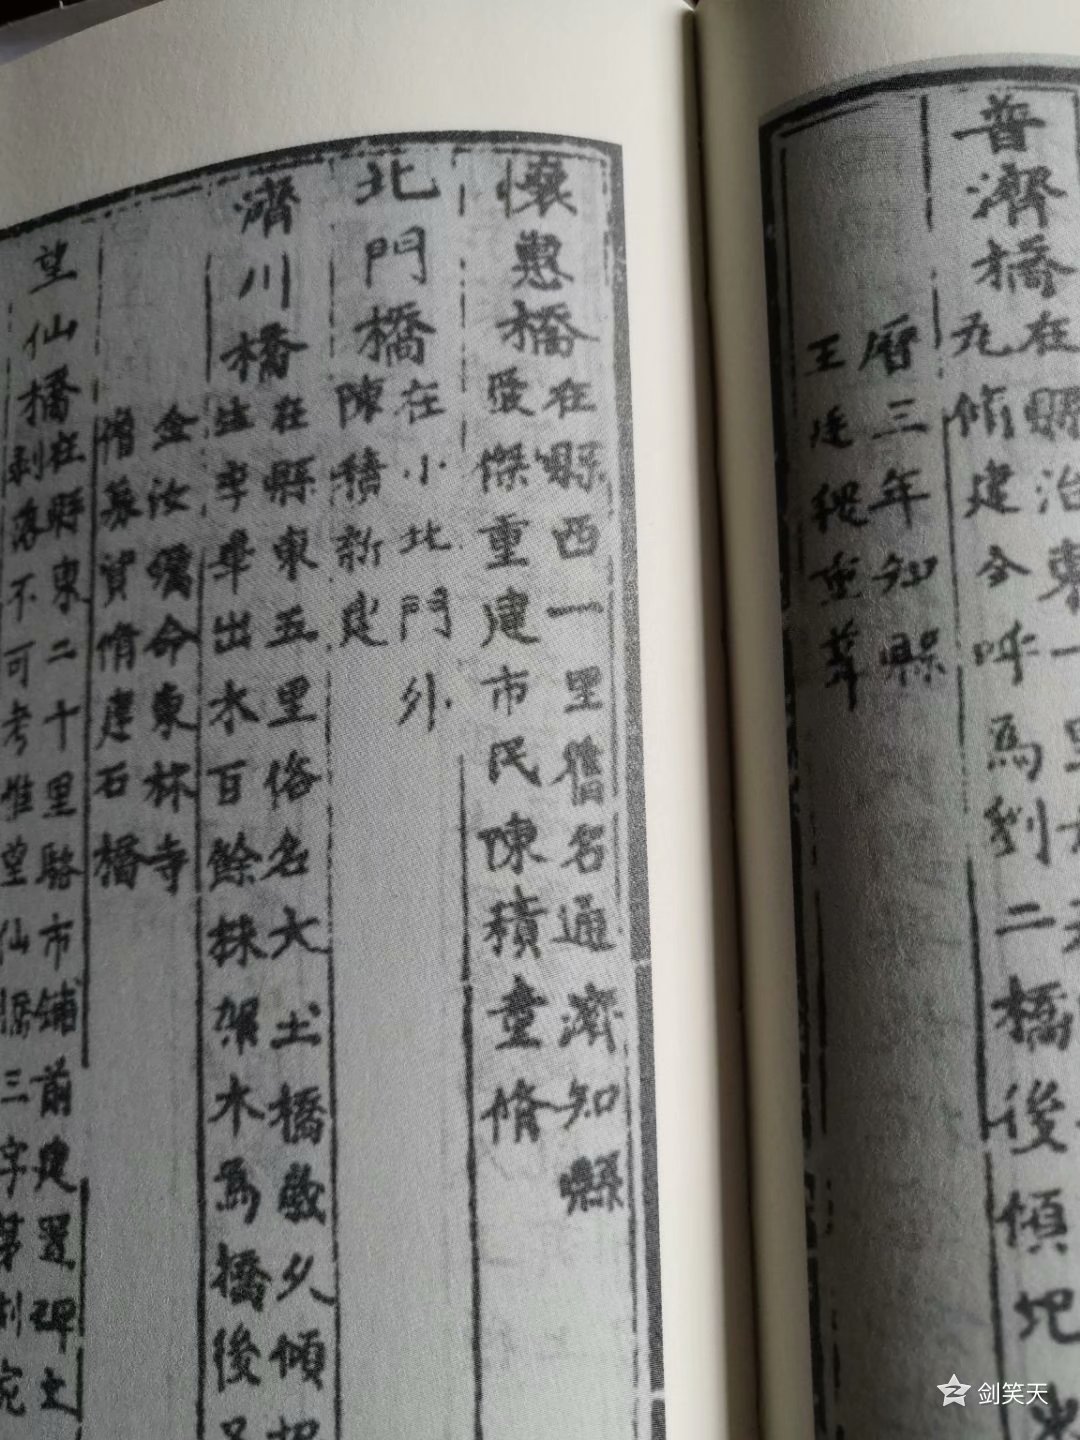 普濟橋
在縣治東一里
九脩建今呼爲劉二橋後傾圯
曆三年知縣
王廷
重葺
懷惠橋
在縣西一里舊名通濟知縣
傑重建市民陳積重脩
北門橋
在小北門外
陳積新建
濟川橋
在縣東五里俗名大土橋敝久傾
出木百餘株架木爲橋後
金汝
命東林寺
僧募資脩建石橋
望仙橋
在縣東二十里駱市舖前建置碑文
剥落不可考惟望仙橋三字
剑笑天